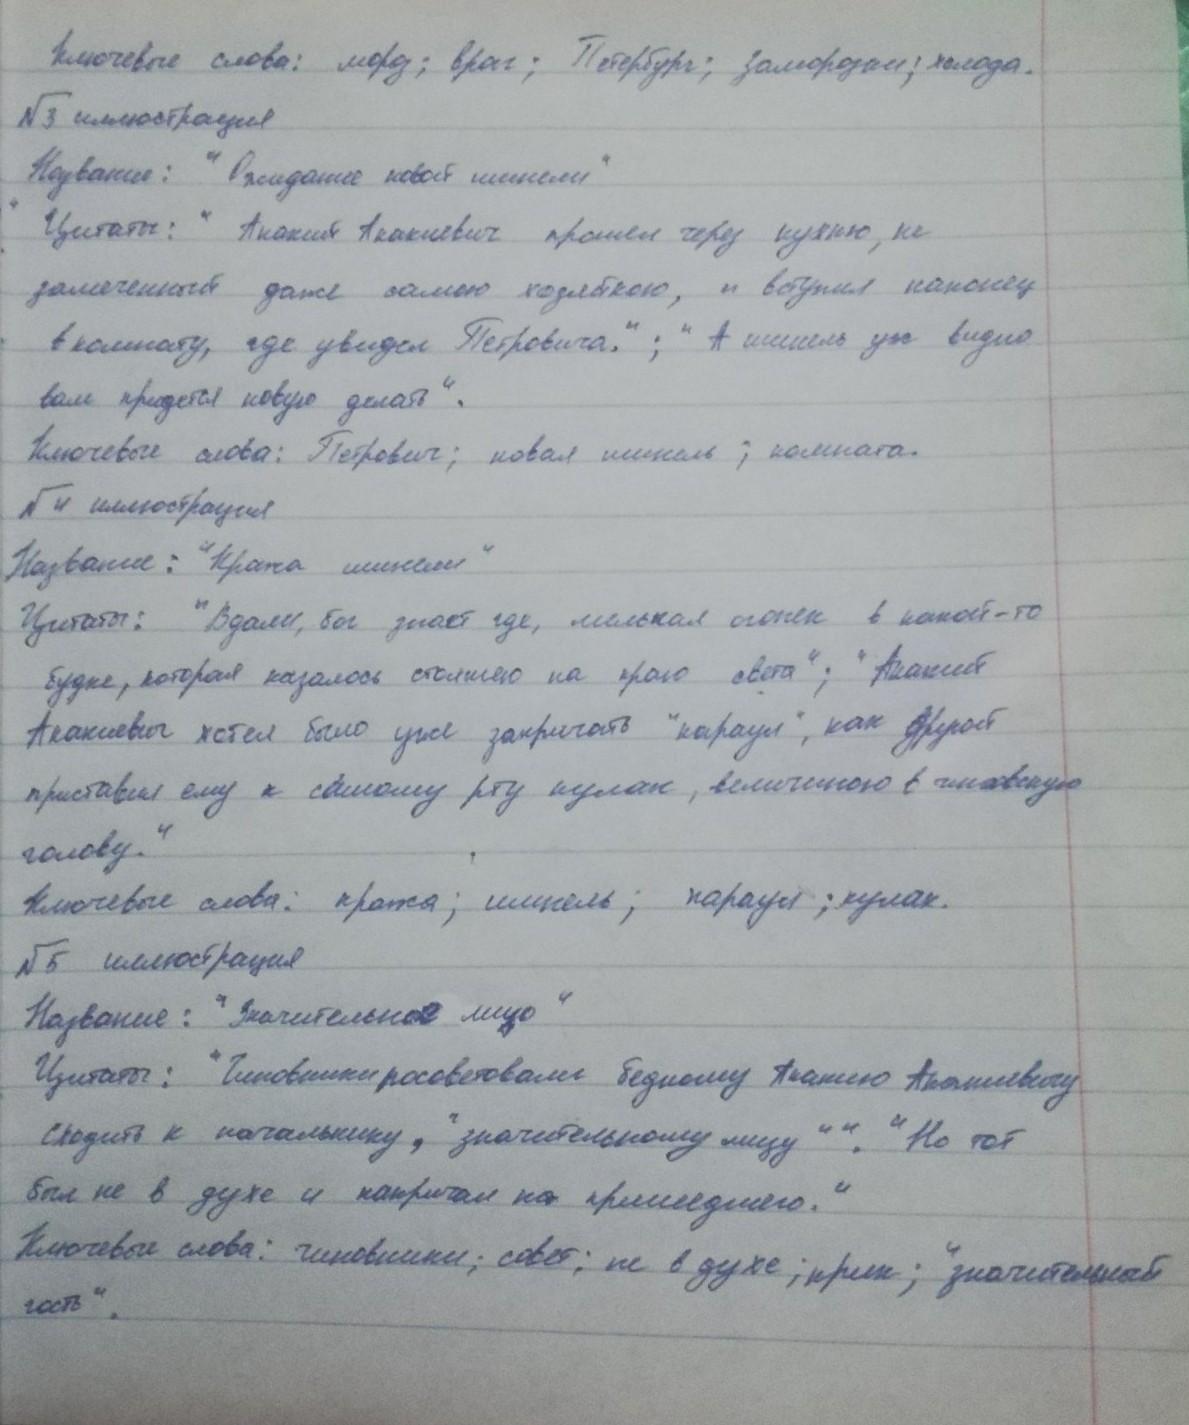 Ключевые слова: мороз; враг; Петербург; заморозки; холода.
№3 иллюстрация
Название: "Ожидание новой шинели"
" Цитаты: " Акакий Акакиевич прошел через кухню, не
замеченный даже самою хозяйкою, и вступил наконец
в комнату, где увидел Петровича."; "А шинель уж видно
вам придется новую делать".
Ключевые слова: Петрович; новая шинель; комната.
№4 иллюстрация
Название: "Кража шинели"
Цитаты: "Вдали, бог знает где, мелькал огонек в какой-то
будке, которая казалось стоявшею на краю света"; "Акакий
Акакиевич хотел было уже закричать "караул", как другой
приставил ему к самому рту кулак, величиною в чиновскую
голову."
Ключевые слова: кража; шинель; караул; кулак.
№5 иллюстрация
Название: "Значительное лицо"
Цитаты: "Чиновники посоветовали бедному Акакию Акакиевичу
сходить к начальнику, "значительному лицу"". "Но тот
был не в духе и накричал на пришедшего."
Ключевые слова: чиновники; совет; не в духе; крик; "значительный
гость".